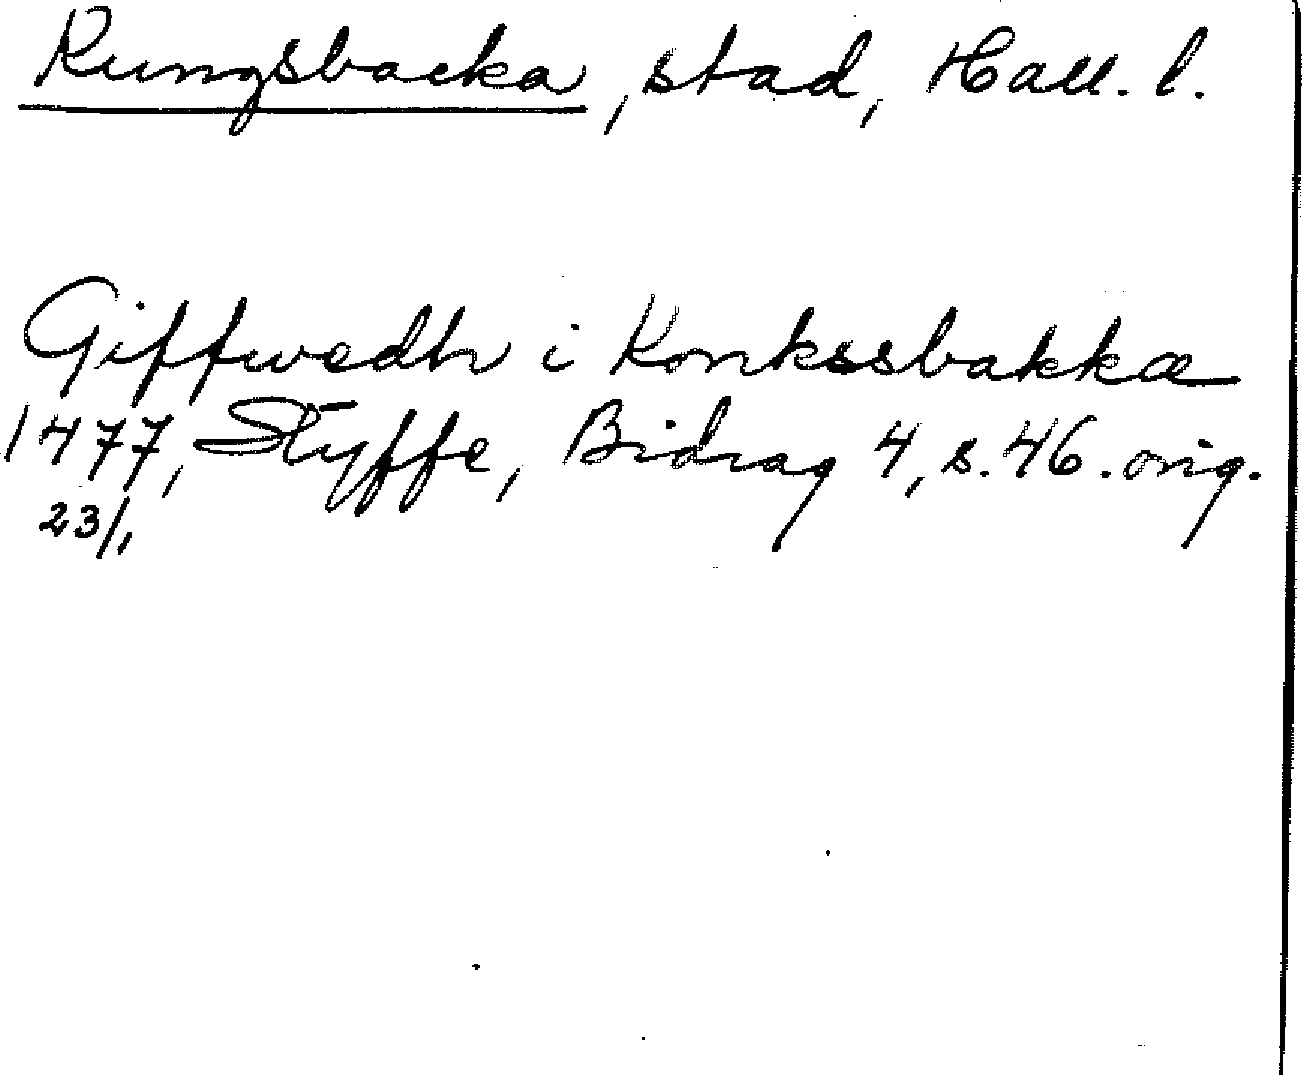 Kungsbacka, stad, Hall. l.
Giffwedh i Konkssbakkæ
1477, Styffe, Bidrag 4, s. 46. orig.
23/1